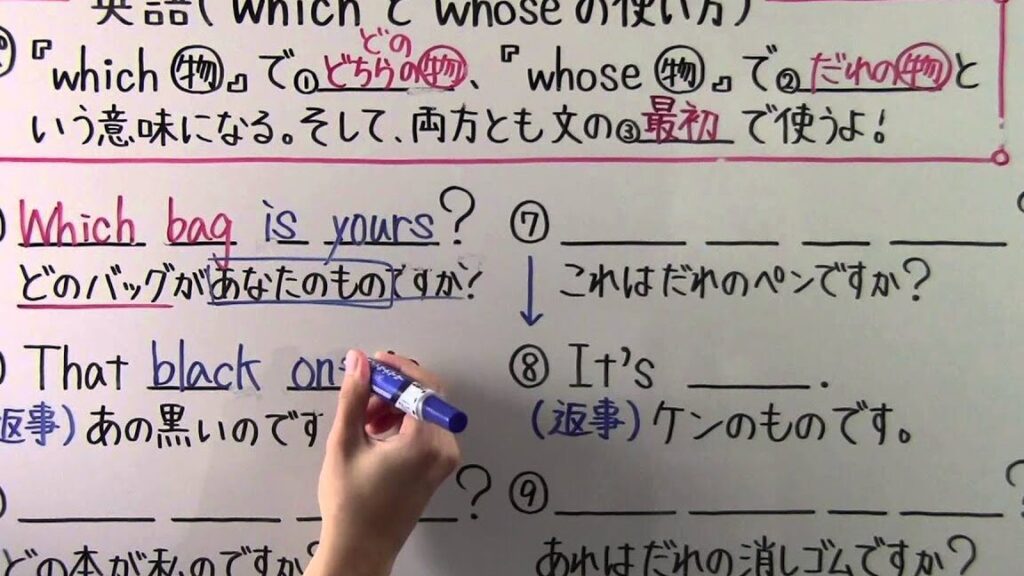 英語(whichとwhoseの使い方)
どの
『which 物』で①どちらの物、『whose 物』で②だれの物と
いう意味になる。そして、両方とも文の③最初で使うよ!
Which bag is yours?
どのバッグがあなたのものですか?
That black on
(返事)あの黒いのです
?
どの本が私のですか?
⑦
これはだれのペンですか?
⑧ It's .
(返事)ケンのものです。
⑨ ?
あれはだれの消しゴムですか?